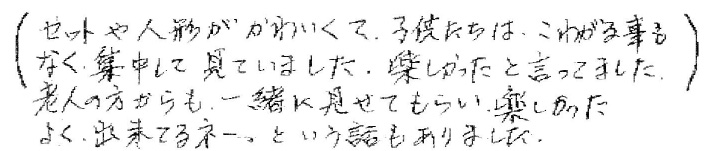 (セットや人形がかわいくて、子供たちは、こわがる事も
なく、集中して見ていました。楽しかったと言ってました。
老人の方からも、一緒に見せてもらい、楽しかった
よく、出来てるネー。という話もありました。)